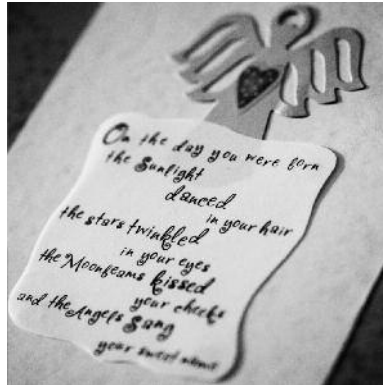 On the day you were born
the Sunlight
danced
in your hair
the stars twinkled
in your eyes
the Moonbeams kissed
your cheeks
and the Angels Sang
your sweet name